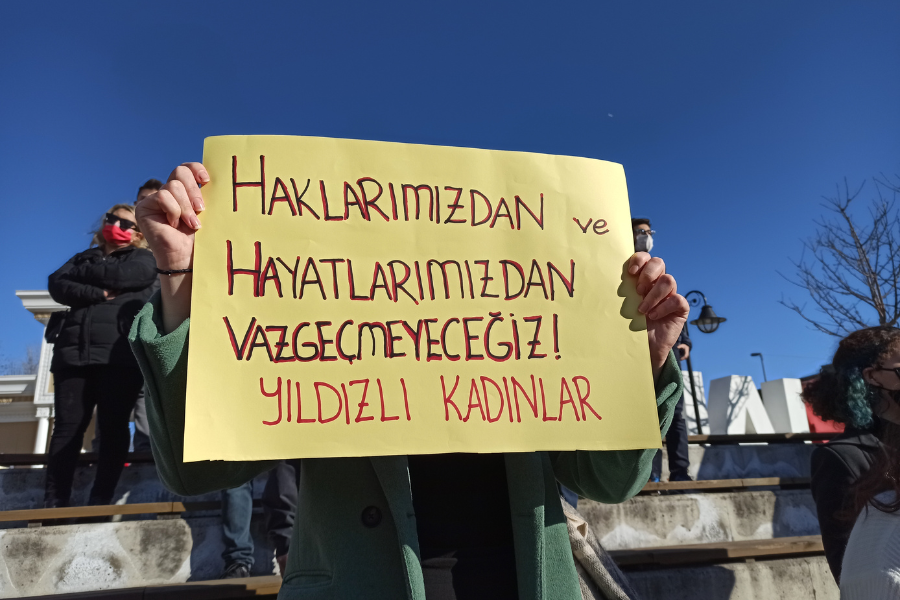 HAKLARIMIZDAN ve
HAYATLARIMIZDAN
VAZGEÇMEYECEĞİZ!
YILDIZLI KADINLAR